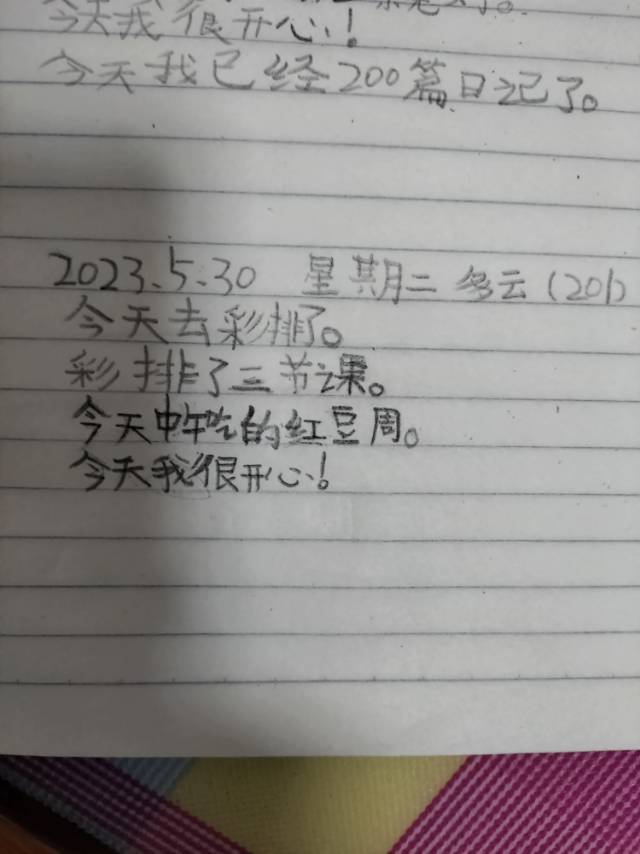 今天我很开心!
今天我已经200篇日记了。
2023.5.30 星期二 多云 (201)
今天去彩排了。
彩排了三节课。
今天中午吃的红豆周。
今天我很开心!